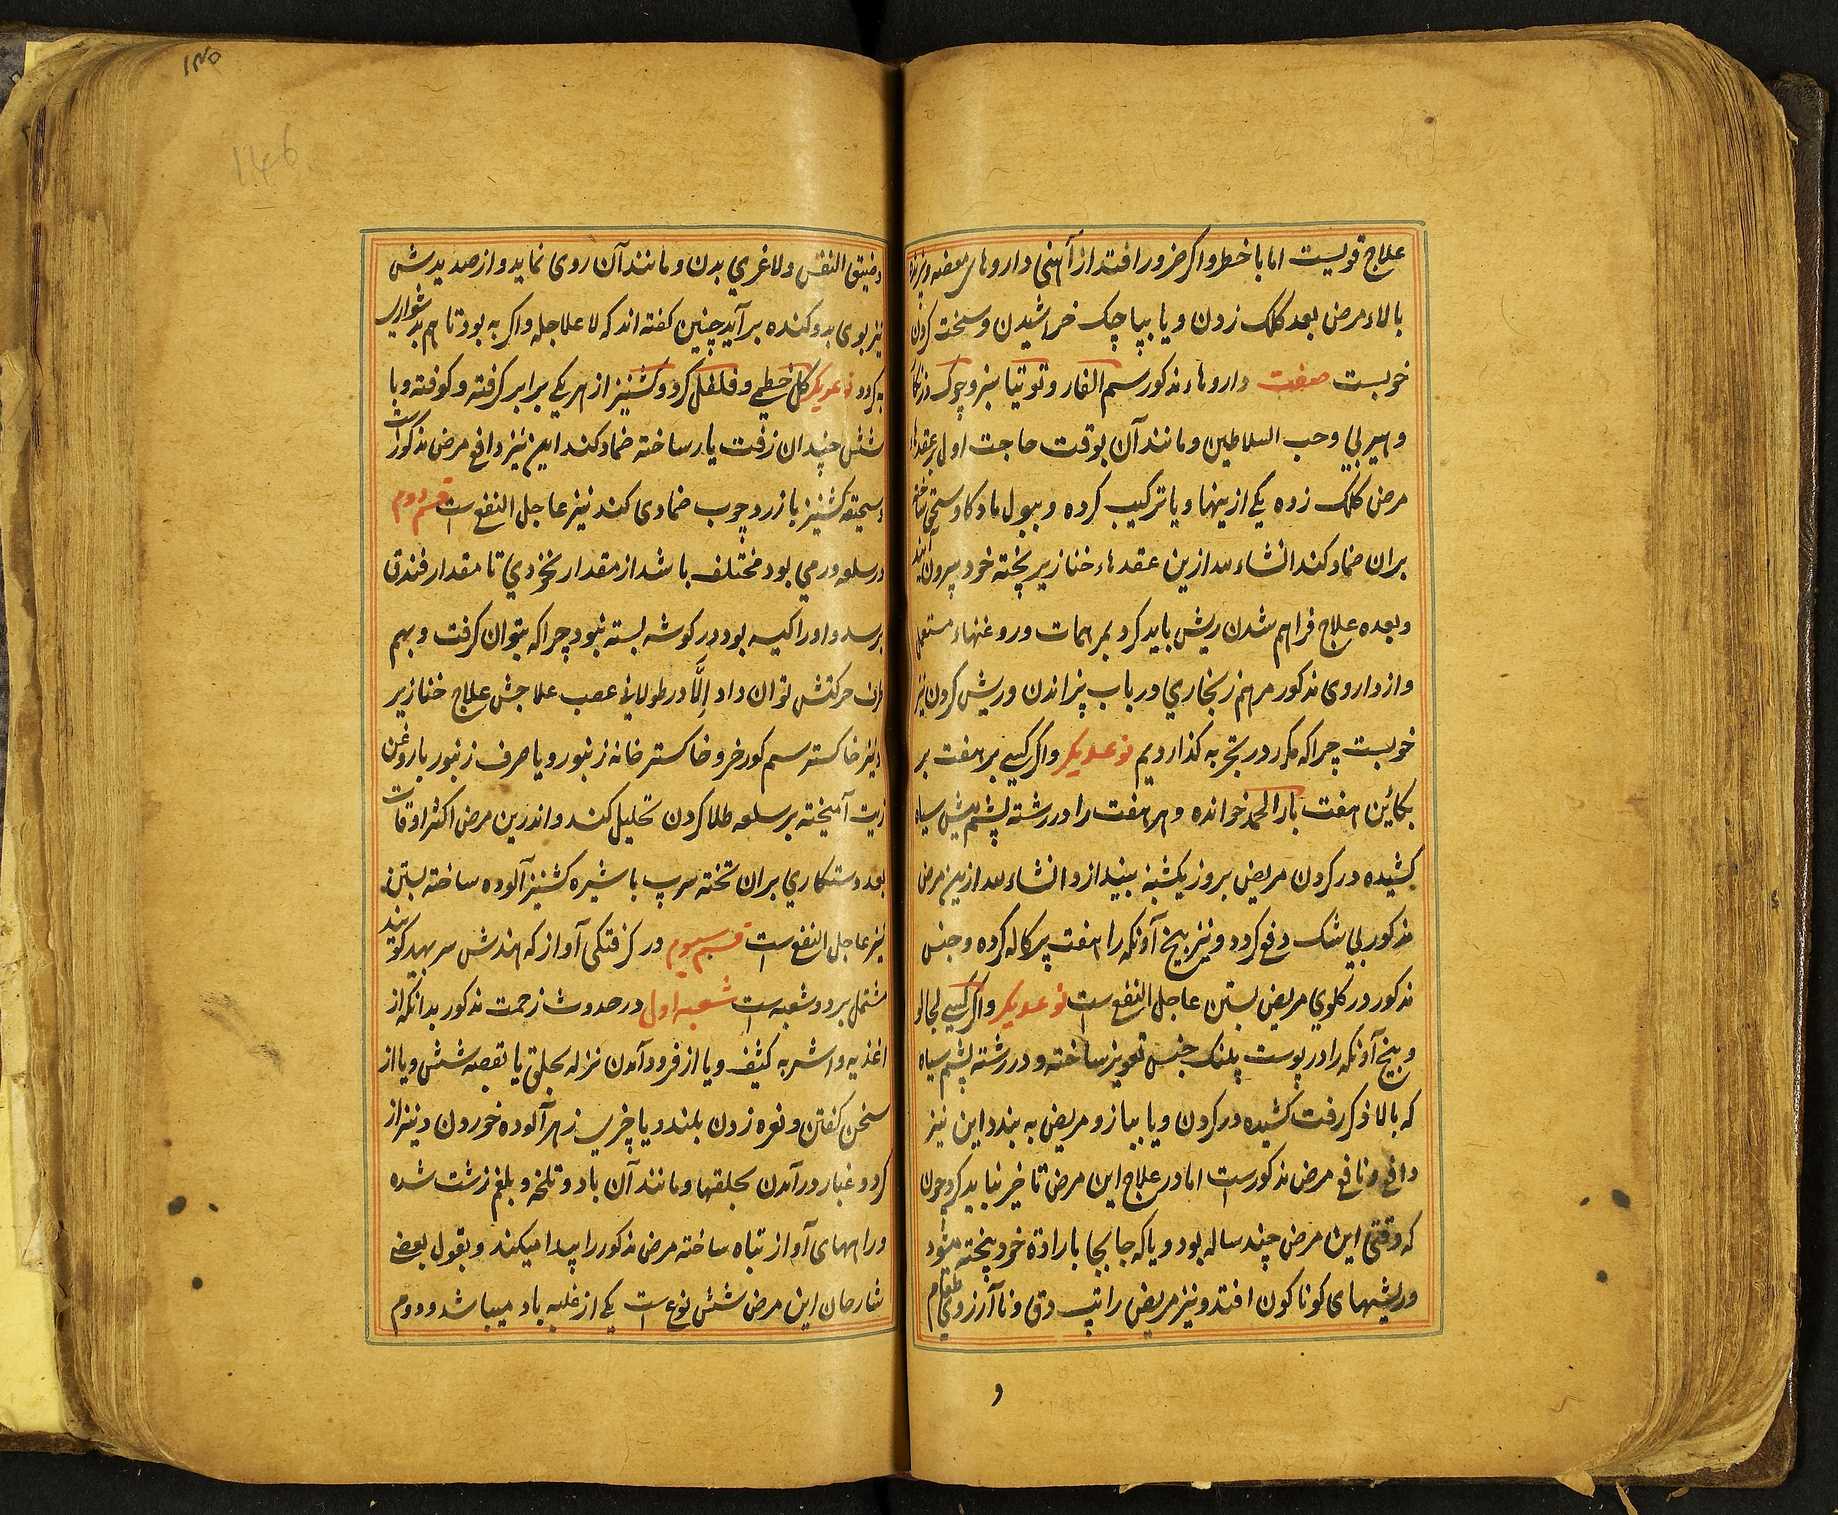 علاج قویست اما باخطر واکر ضرور افتد از آهنی داروهای بعضه
بالاء مرض بعد کلک زدن ویا بپاچک خراشیدن وسخت کردن
خوبست صفت داروهاء مذکور سم الفار وتوتیا سبز وچوک
وحب السلاطین ومانند آن بوقت حاجت اول بر عقدهاء
مرض کلک زده یکی ازینها ویا ترکیب کرده وببول ماده کاو
بران ضماد کند انشاء الله ازین عقدهاء خنازیر پخته خود بیرون آیند
وبعده علاج فراهم شدن ریش باید کرد بمرهمات وروغنهاء مستعمل
واز داروی مذکور مرهم زنجاری در باب پزاندن وریش کردن نیز
خوبست چراکه مکرر در تجربه کذاردیم نوعدیکر واکر کسی بر هفت بر
بکائین هفت بار الحمد خوانده وهر هفت را در رشته پشم میش سیاه
کشیده در کردن مریض بروز یکشنبه بیندازد انشاء الله ازین مرض
مذکور بی شک دفع کردد ونیز بیخ آونکه را هفت پرکاله کرده وجنس
مذکور در کلوی مریض بستن عاجل النفع است نوعدیکر واکر کسی
وبیخ آونکه را در پوست پلنک جنس تعویز ساخته ودر رشته پشم سیاه
که بالا ذکر رفت کشیده در کردن ویا ببازو مریض به بندد این نیز
دافع ونافع مرض مذکورست اما در علاج این مرض تاخیر نباید کرد چون
که وقتی این مرض چند ساله بود ویا که جابجا باراده خود پخته شود
وریشهای کوناکون افتد ونیز مریض را تپ دق ونا آرزوی طعام
و
۱۴۵
146
وضیق النفس ولاغری بدن ومانند آن روی نماید واز صدیدش
نیز بوی بد وکنده برآید چنین کفته اند که لا علاجله واکر به بود تا هم بدشواری
به کردد نوعدیکر کل خطمی وفلفل کرد وکشنیز از هر یکی برابر کرفته وکوفته وبا
شش چندان زفت یار ساخته ضماد کند این نیز دافع مرض مذکورست
وسحیقه کشنیز بازرد چوب ضمادی کند نیز عاجل النفع است قسم دوم
در سلعه ورمی بود مختلف باشد از مقدار نخودی تا مقدار فندق
برسد واو را کیسه بود در کوشه بسته نبود چراکه بتوان کرفت وبهم
طرف حرکتش توان داد اِلّا در طولانی عصب علاجش علاج خنازیر
ونیز خاکستر سم کورخر وخاکستر خانه زنبور ویا صرف زنبور با روغن
زیت آمیخته بر سلعه طلا کردن تحلیل کند واندرین مرض اکثر اوقات
بعد دستکاری بران تخته سرپ با شیره کشنیز آلوده ساخته بستن
نیز عاجل النفع است قسم سیوم در کرفتکی آواز که اهندش سربهد کویند
مشتمل بر دو شعبه است شعبه اول در حدوث زحمت مذکور بدانکه از
اغذیه واشربه کثیف ویا از فرود آمدن نزله بحلق یا بقصبه شش ویا از
سخن کفتن ونعره زدن بلند ویا چزی زهر آلوده خوردن ونیز از
کرد وغبار در آمدن بحلقها ومانند آن باد وتلخه وبلغم زشت شده
وراههای آواز تباه ساخته مرض مذکور را پیدا میکند وبقول بعضی
شارحان این مرض شش نوع است یکی از غلبه باد میباشد ودوم